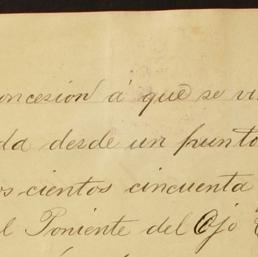 oncesion á que se v
da desde un punto
os cientos cincuenta
l Poniente del Ojo